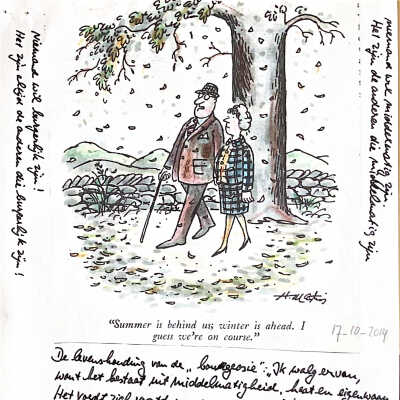 Niemand wil burgerlijk zijn!
Het zijn altijd de anderen die burgerlijk zijn!
niemand wil middelmatig zijn.
Het zijn de anderen die middelmatig zijn
"Summer is behind us; winter is ahead. I
guess we're on course."
17-10-2019
De levenshouding van de "bourgeoisie": "Ik walg ervan,
want het bestaat uit middelmatigheid, haat en eigenwaan
Het voedt zich